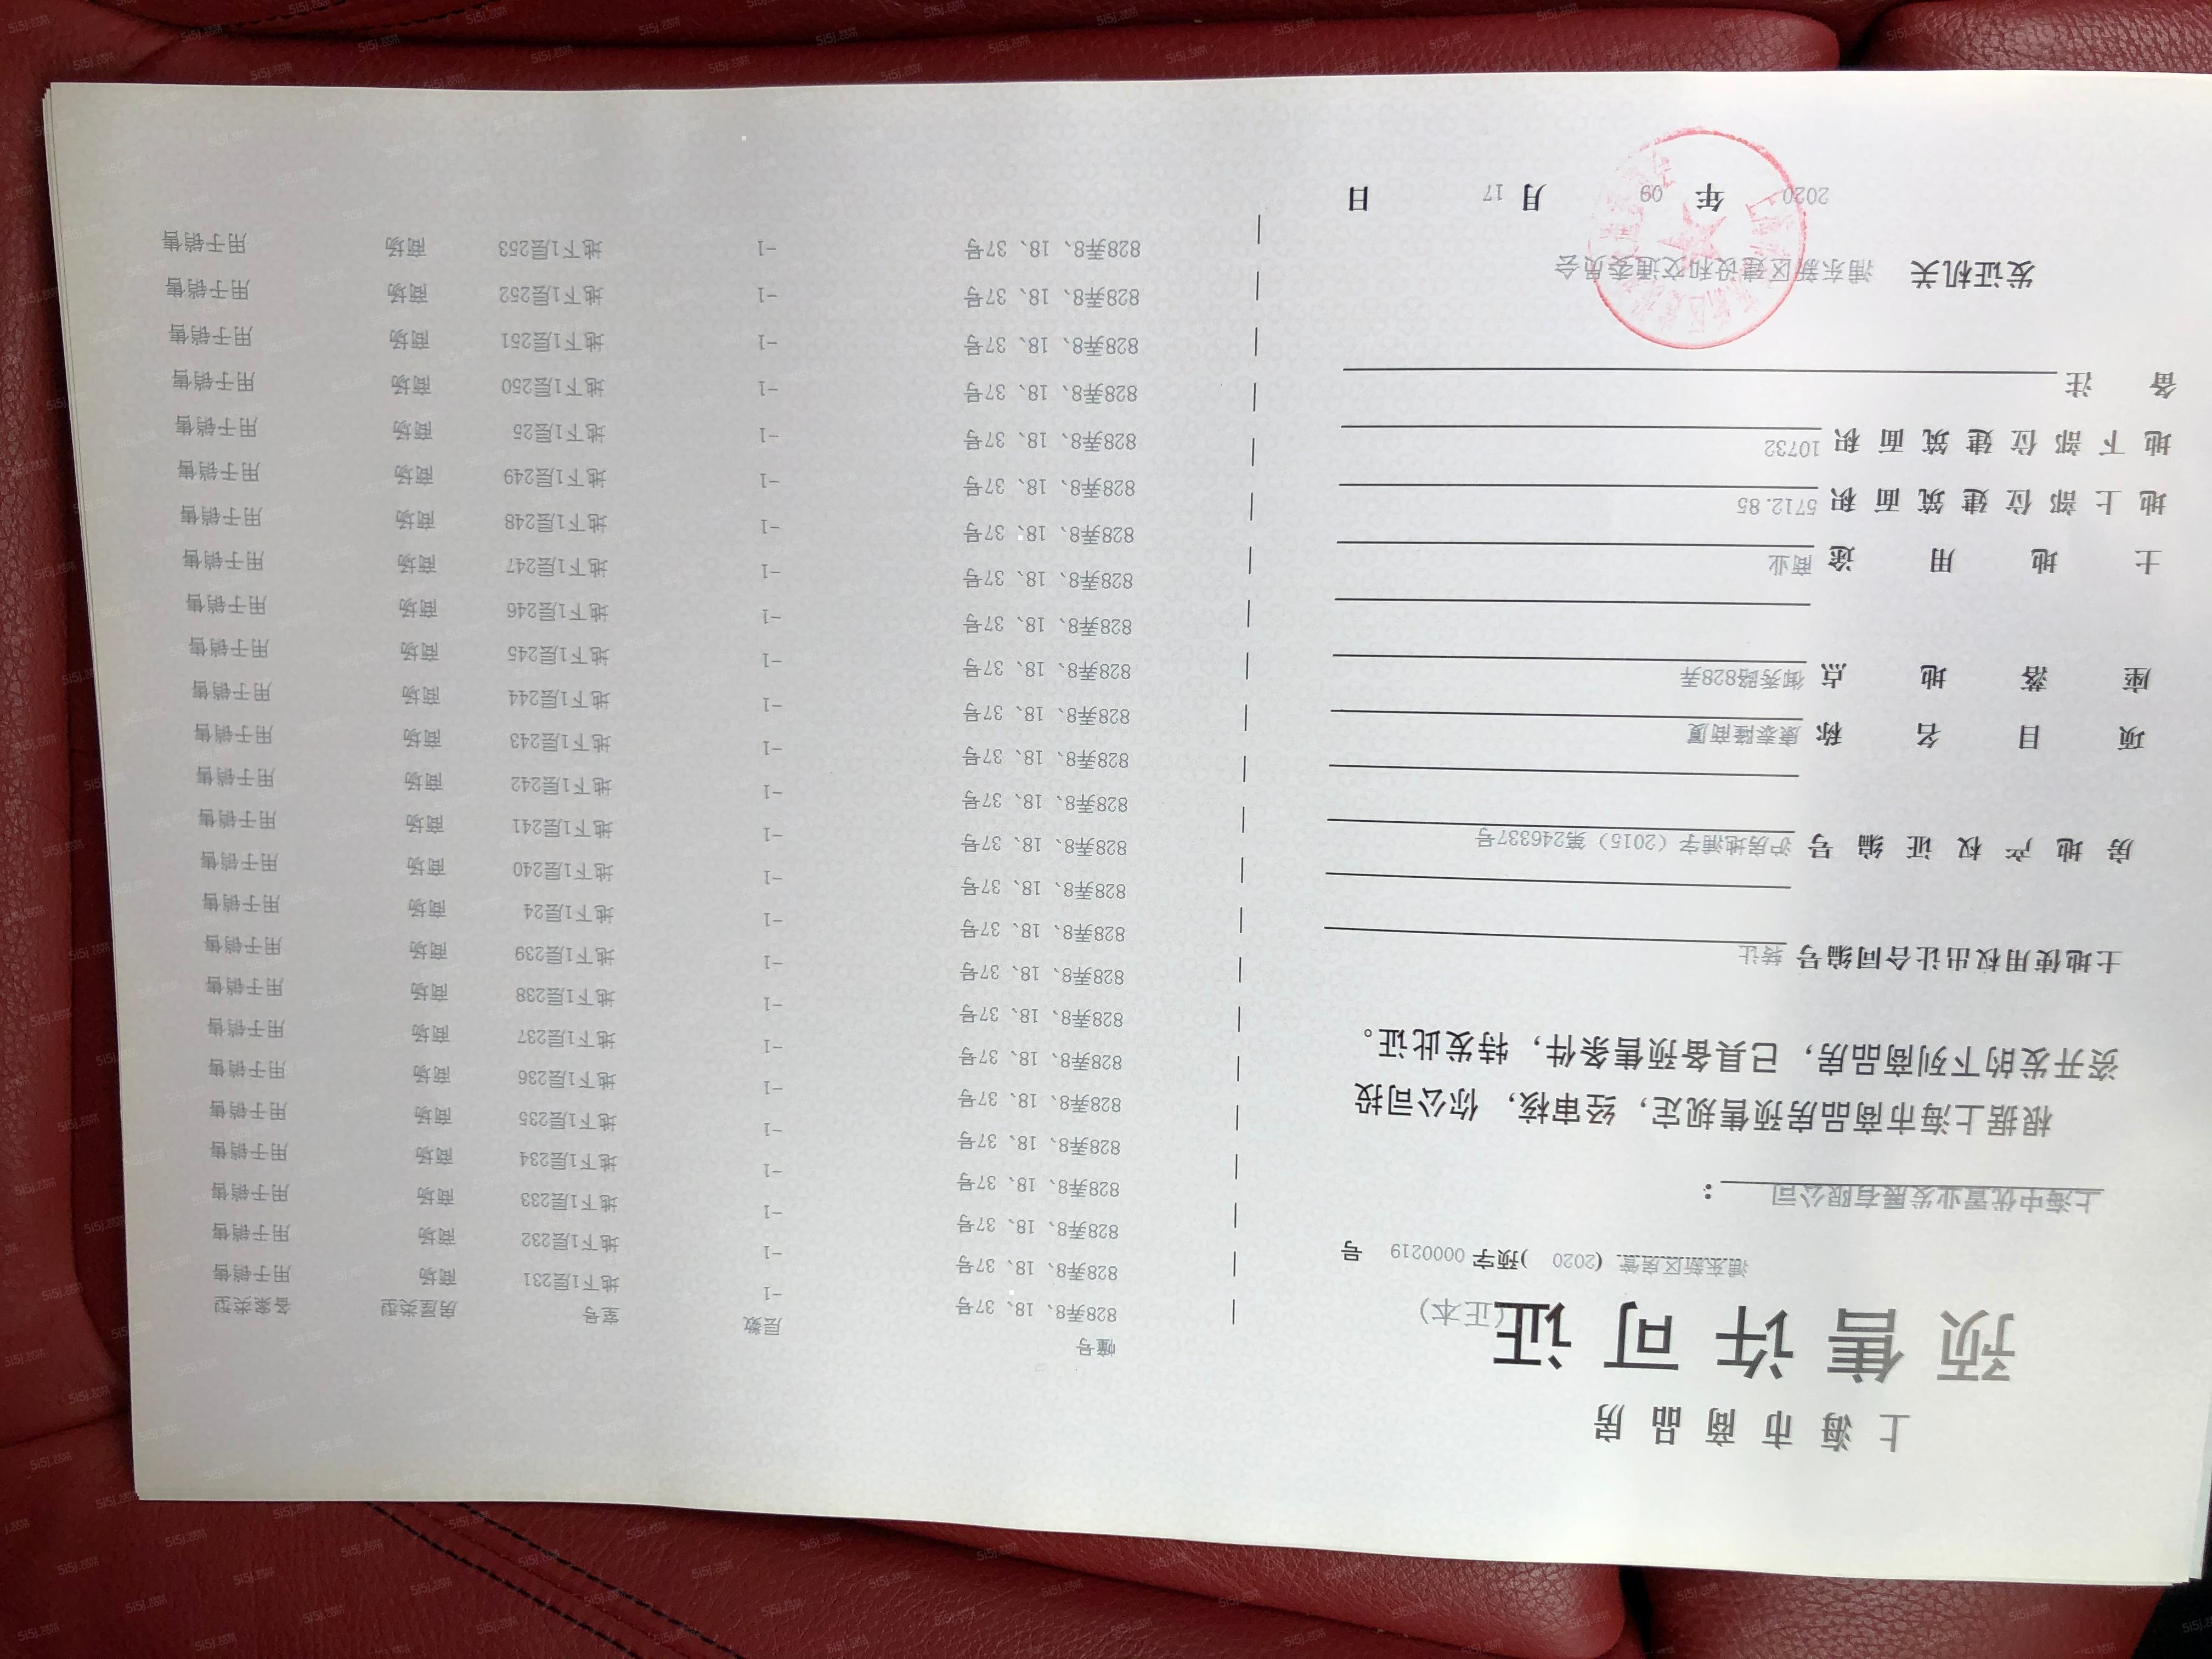 上海市商品房
预售许可证
(正本)
浦东新区房管 (2020)预字0000219 号
上海中优置业发展有限公司：
根据上海市商品房预售规定，经审核，你公司投
资开发的下列商品房，已具备预售条件，特发此证。
土地使用权出让合同编号 转让
房地产权证编号 沪房地浦字（2015）第246337号
项目名称 康泰隆商厦
座落地点 御秀路828弄
土地用途 商业
地上部位建筑面积 5712.85
地下部位建筑面积 10732
备注
发证机关 浦东新区建设和交通委员会
2020 年 09 月 17 日
幢号 层数 室号 房屋类型 备案类型
828弄8、18、37号 -1 地下1层231 商场 用于销售
828弄8、18、37号 -1 地下1层232 商场 用于销售
828弄8、18、37号 -1 地下1层233 商场 用于销售
828弄8、18、37号 -1 地下1层234 商场 用于销售
828弄8、18、37号 -1 地下1层235 商场 用于销售
828弄8、18、37号 -1 地下1层236 商场 用于销售
828弄8、18、37号 -1 地下1层237 商场 用于销售
828弄8、18、37号 -1 地下1层238 商场 用于销售
828弄8、18、37号 -1 地下1层239 商场 用于销售
828弄8、18、37号 -1 地下1层24 商场 用于销售
828弄8、18、37号 -1 地下1层240 商场 用于销售
828弄8、18、37号 -1 地下1层241 商场 用于销售
828弄8、18、37号 -1 地下1层242 商场 用于销售
828弄8、18、37号 -1 地下1层243 商场 用于销售
828弄8、18、37号 -1 地下1层244 商场 用于销售
828弄8、18、37号 -1 地下1层245 商场 用于销售
828弄8、18、37号 -1 地下1层246 商场 用于销售
828弄8、18、37号 -1 地下1层247 商场 用于销售
828弄8、18、37号 -1 地下1层248 商场 用于销售
828弄8、18、37号 -1 地下1层249 商场 用于销售
828弄8、18、37号 -1 地下1层25 商场 用于销售
828弄8、18、37号 -1 地下1层250 商场 用于销售
828弄8、18、37号 -1 地下1层251 商场 用于销售
828弄8、18、37号 -1 地下1层252 商场 用于销售
828弄8、18、37号 -1 地下1层253 商场 用于销售